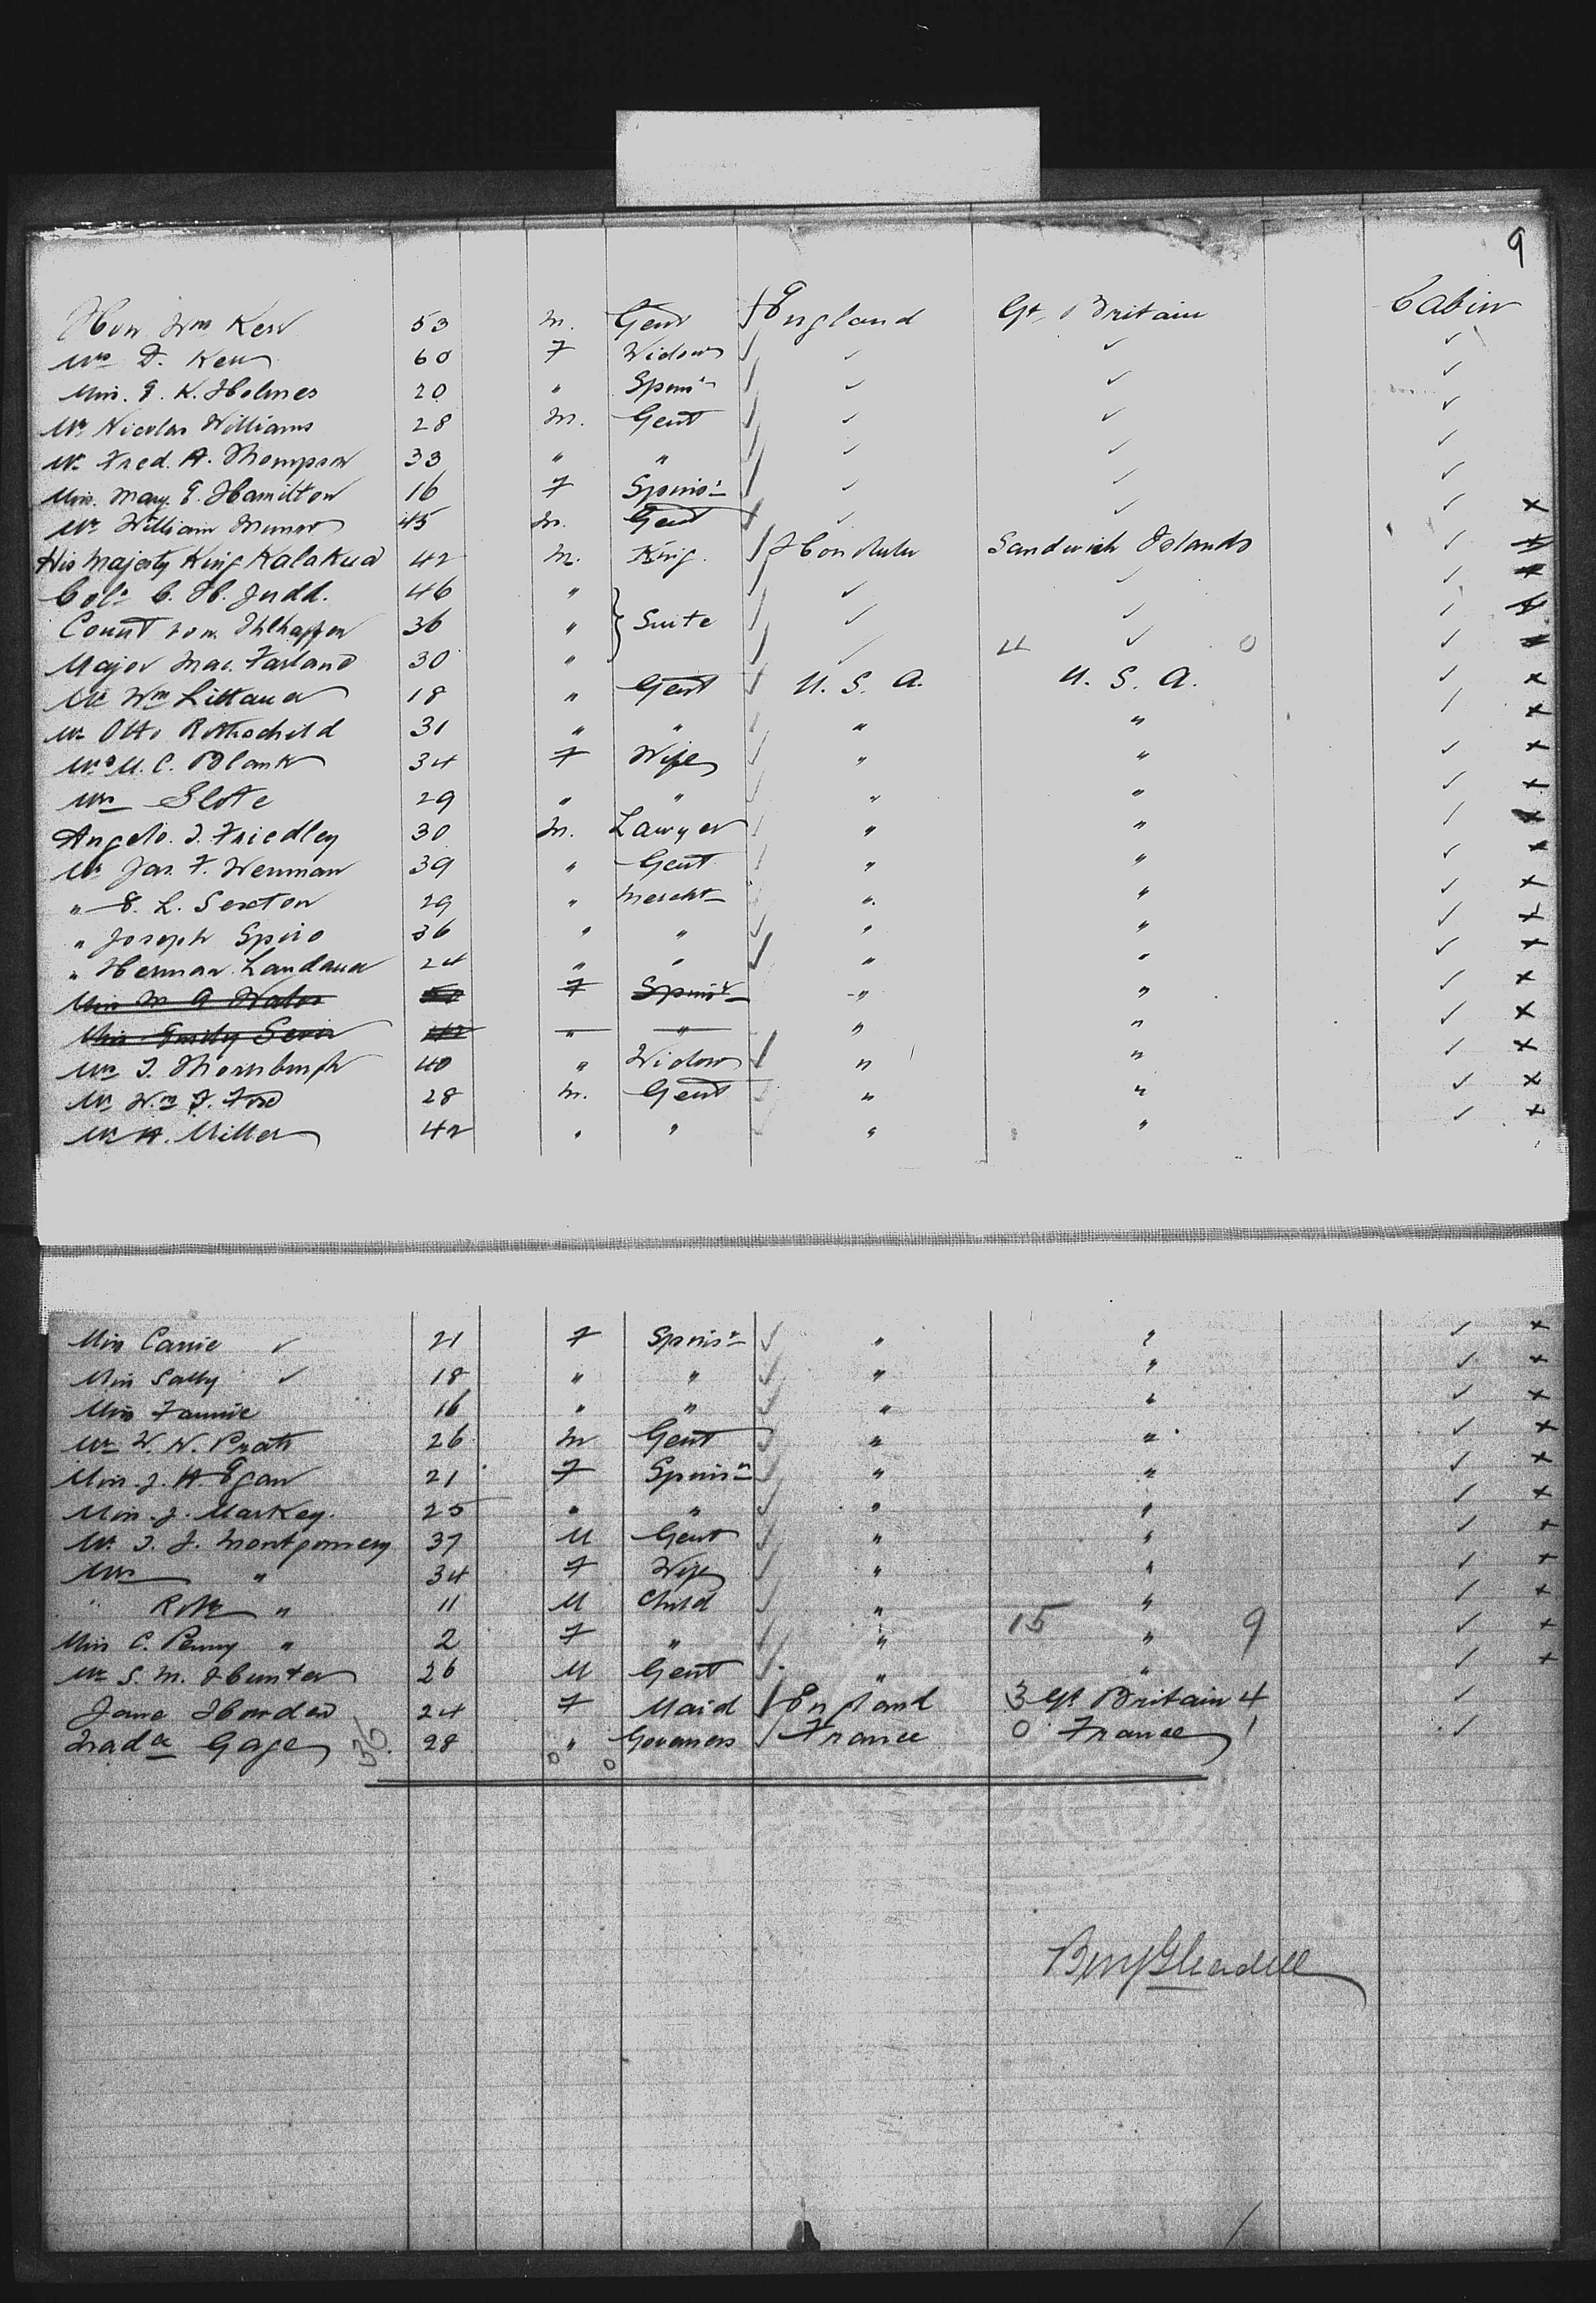 9
Hon Wm Kerr 53 M. Gent England Gt. Britain Cabin
Mrs D. Kerr 60 F Widow ✓ ✓ ✓
Miss. E. K. Holmes 20 " Spins'r ✓ ✓ ✓
Mr Nicolas Williams 28 M. Gent ✓ ✓ ✓
Mr Fred. A. Thompson 33 " " ✓ ✓ ✓
Miss. Mary. E. Hamilton 16 F Spins'r ✓ ✓ ✓
Mr William 45 M. Gent ✓ ✓ ✓ x
His Majesty King Kalakua 42 M. King. Honolulu Sandwich Islands ✓ x
Col. C. H. Judd. 46 " ✓ ✓ ✓ x
Count von 36 " } Suite ✓ ✓ ✓ x
Major Mac. Farland 30 " ✓ 4 ✓ 0 ✓ x
Mr Wm Littauer 18 " Gent U. S. A. U. S. A. ✓ x
Mr Otto Rothschild 31 " " " " ✓ x
Mrs M. C. Blank 34 F Wife " " ✓ x
Mrs Slote 29 " " " " ✓ x
Angelo. T. Friedley 30 M. Lawyer " " ✓ x
Mr Jas. F. Wenman 39 " Gent " " ✓ x
" L. Sexton 29 " Mercht " " ✓ x
" Joseph Spiro 36 " " " " ✓ x
" Herman Landauer 24 " " " " ✓ x
Miss M F Spins'r " " ✓ x
Miss Emily " " " " ✓ x
Mrs T. Thornburgh 40 " Widow " " ✓ x
Mr Wm F. Ford 28 M. Gent " " ✓ x
Mr H. Miller 42 " " " " ✓ x
Miss Carrie ✓ 21 F Spins'r " " ✓ x
Miss Sally ✓ 18 " " " " ✓ x
Miss Fannie 16 " " " " ✓ x
Mr W. N. Pratt 26 M Gent " " ✓ x
Miss. J. H. Egan 21 F Spins'r " " ✓ x
Miss. J. Markey. 25 " " " " ✓ x
Mr T. J. Montgomery 37 M Gent " " ✓ x
Mrs " 34 F Wife " " ✓ x
" " 11 M Child " " ✓ x
Miss C. Penny " 2 F " " 15 " 9 ✓ x
Mr S. M. Hunter 26 M Gent " " ✓ x
Jane Howden 24 F Maid England 3 Gt Britain 4 ✓
Gage 36. 28 " Governess France 0 France 1 ✓
0 0
Benj Gleadell